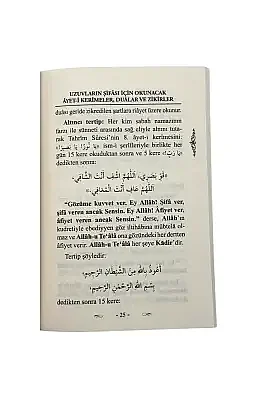 UZUVLARIN ŞİFASI İÇİN OKUNACAK
ÂYET-İ KERİMELER, DUÂLAR VE ZİKİRLER
duâsı geride zikredilen şartlara riâyet üzere okunur.
Altıncı tertip: Her kim sabah namazının
farzı ile sünneti arasında sağ eliyle alnını tutarak
Tahrîm Sûresi'nin 8. âyet-i kerîmesini;
«يَا نُورُ يَا بَصِيرُ» ism-i şerîfleriyle birlikte her
gün 15 kere okuduktan sonra ve 5 kere «يَا رَبِّ»
dedikten sonra:
«قَوِّ بَصَرِي، اَللّٰهُمَّ اشْفِ أَنْتَ الشَّافِي،
اَللّٰهُمَّ عَافِ أَنْتَ الْمُعَافِي.»
"Gözüme kuvvet ver, Ey Allâh! Şifâ ver,
şifâ veren ancak Sensin. Ey Allâh! Âfiyet ver,
âfiyet veren ancak Sensin." derse, Allâh'ın
kudretiyle ebediyyen göz illhâhına mübtelâ olmaz
ve Allâh-u Te'âlâ onu gözündeki her dertten
âfiyet verir. Allâh-u Te'âlâ her şeye Kâdir'dir.
Tertip şöyledir:
أَعُوذُ بِاللّٰهِ مِنَ الشَّيْطَانِ الرَّجِيمِ،
بِسْمِ اللّٰهِ الرَّحْمٰنِ الرَّحِيمِ،
dedikten sonra 15 kere:
- 25 -